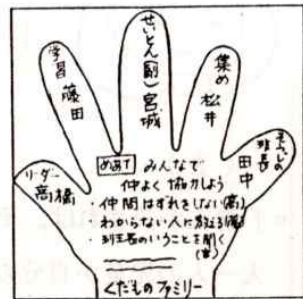 リーダー
高橋
学習
藤田
せいとん(副)
宮城
集め
松井
そうじの
班長
田中
めあて
みんなで
仲よく協力しよう
・仲間はずれをしない(高)
・わからない人に教える(藤)
・班長のいうことを聞く
(宮)
くだものファミリー